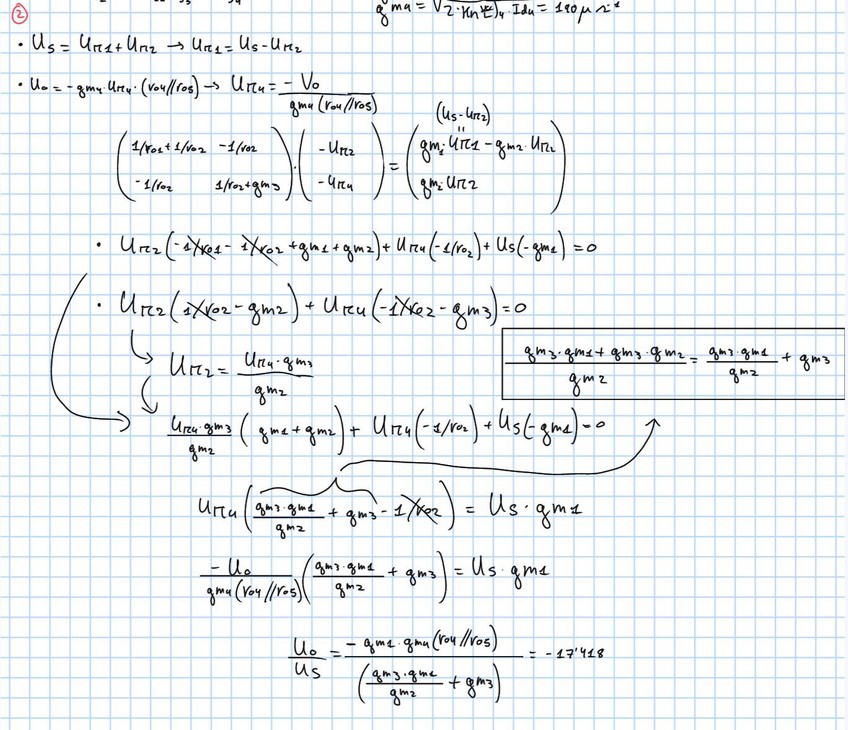 ②
gm4 = √2·Kn(W/L)4·Id4 = 190μ Ω⁻¹
· Us = Uπ1 + Uπ2 → Uπ1 = Us - Uπ2
· Uo = -gm4·Uπ4·(ro4//ro5) → Uπ4 = -Vo / gm4(ro4//ro5)
(Us-Uπ2)
"
(1/ro1+1/ro2 -1/ro2) · (-Uπ2) = (gm1·Uπ1 - gm2·Uπ2)
(-1/ro2 1/ro2+gm3) (-Uπ4) (gm2·Uπ2)
· Uπ2(-1/ro1 - 1/ro2 + gm1 + gm2) + Uπ4(-1/ro2) + Us(-gm1) = 0
· Uπ2(1/ro2 - gm2) + Uπ4(-1/ro2 - gm3) = 0
gm3·gm1 + gm3·gm2 / gm2 = gm3·gm1 / gm2 + gm3
Uπ2 = Uπ4·gm3 / gm2
Uπ4·gm3 / gm2 (gm1 + gm2) + Uπ4(-1/ro2) + Us(-gm1) = 0
Uπ4(gm3·gm1 / gm2 + gm3 - 1/ro2) = Us·gm1
-Uo / gm4(ro4//ro5) (gm3·gm1 / gm2 + gm3) = Us·gm1
Uo / Us = -gm1·gm4(ro4//ro5) / (gm3·gm1 / gm2 + gm3) = -17'418